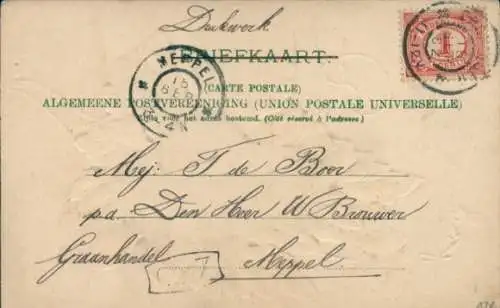 Drukwerk
BRIEFKAART.
(CARTE POSTALE)
ALGEMEENE POSTVEREENIGING (UNION POSTALE UNIVERSELLE)
Zijde voor het adres bestemd. (Côté réservé à l'adresse.)
MEPPEL
15
1
Mej: T de Boer
p.a. Den Heer W Brouwer
Graanhandel
Meppel